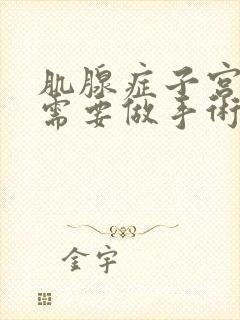 肌腺症子宫
需要做手術
金宇